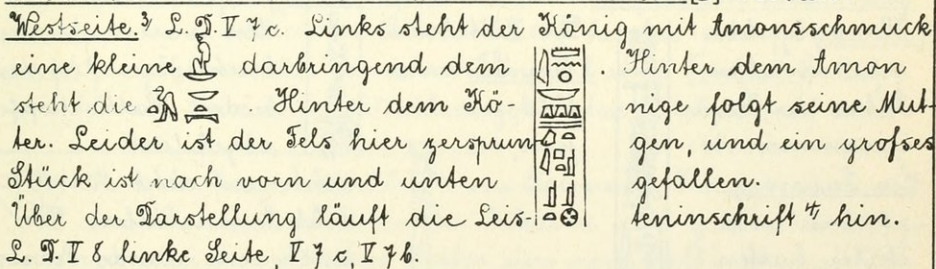 Westseite. 3/ L. D. V 7 c. Links steht der König mit Amonsschmuck
eine kleine darbringend dem . Hinter dem Amon
steht die . Hinter dem Kö- nige folgt seine Mut-
ter. Leider ist der Fels hier zersprun- gen, und ein grofses
Stück ist nach vorn und unten gefallen.
Über der Darstellung läuft die Leis- teninschrift 4/ hin.
L. D. V 8 linke Seite, V 7 c, V 7 b.